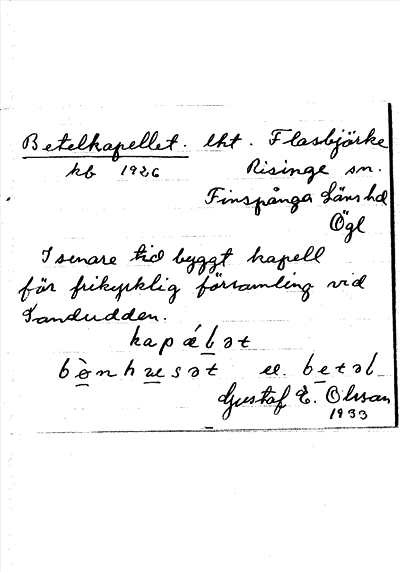 Betelkapellet. lht. Flasbjörke
kb 1926 Risinge sn.
Finspånga Läns hd
Ögl
I senare tid byggt kapell
för frikyrklig församling vid
Sandudden.
kapǽlət
bònhusət el. betəl
Gustaf E. Olsson
1933